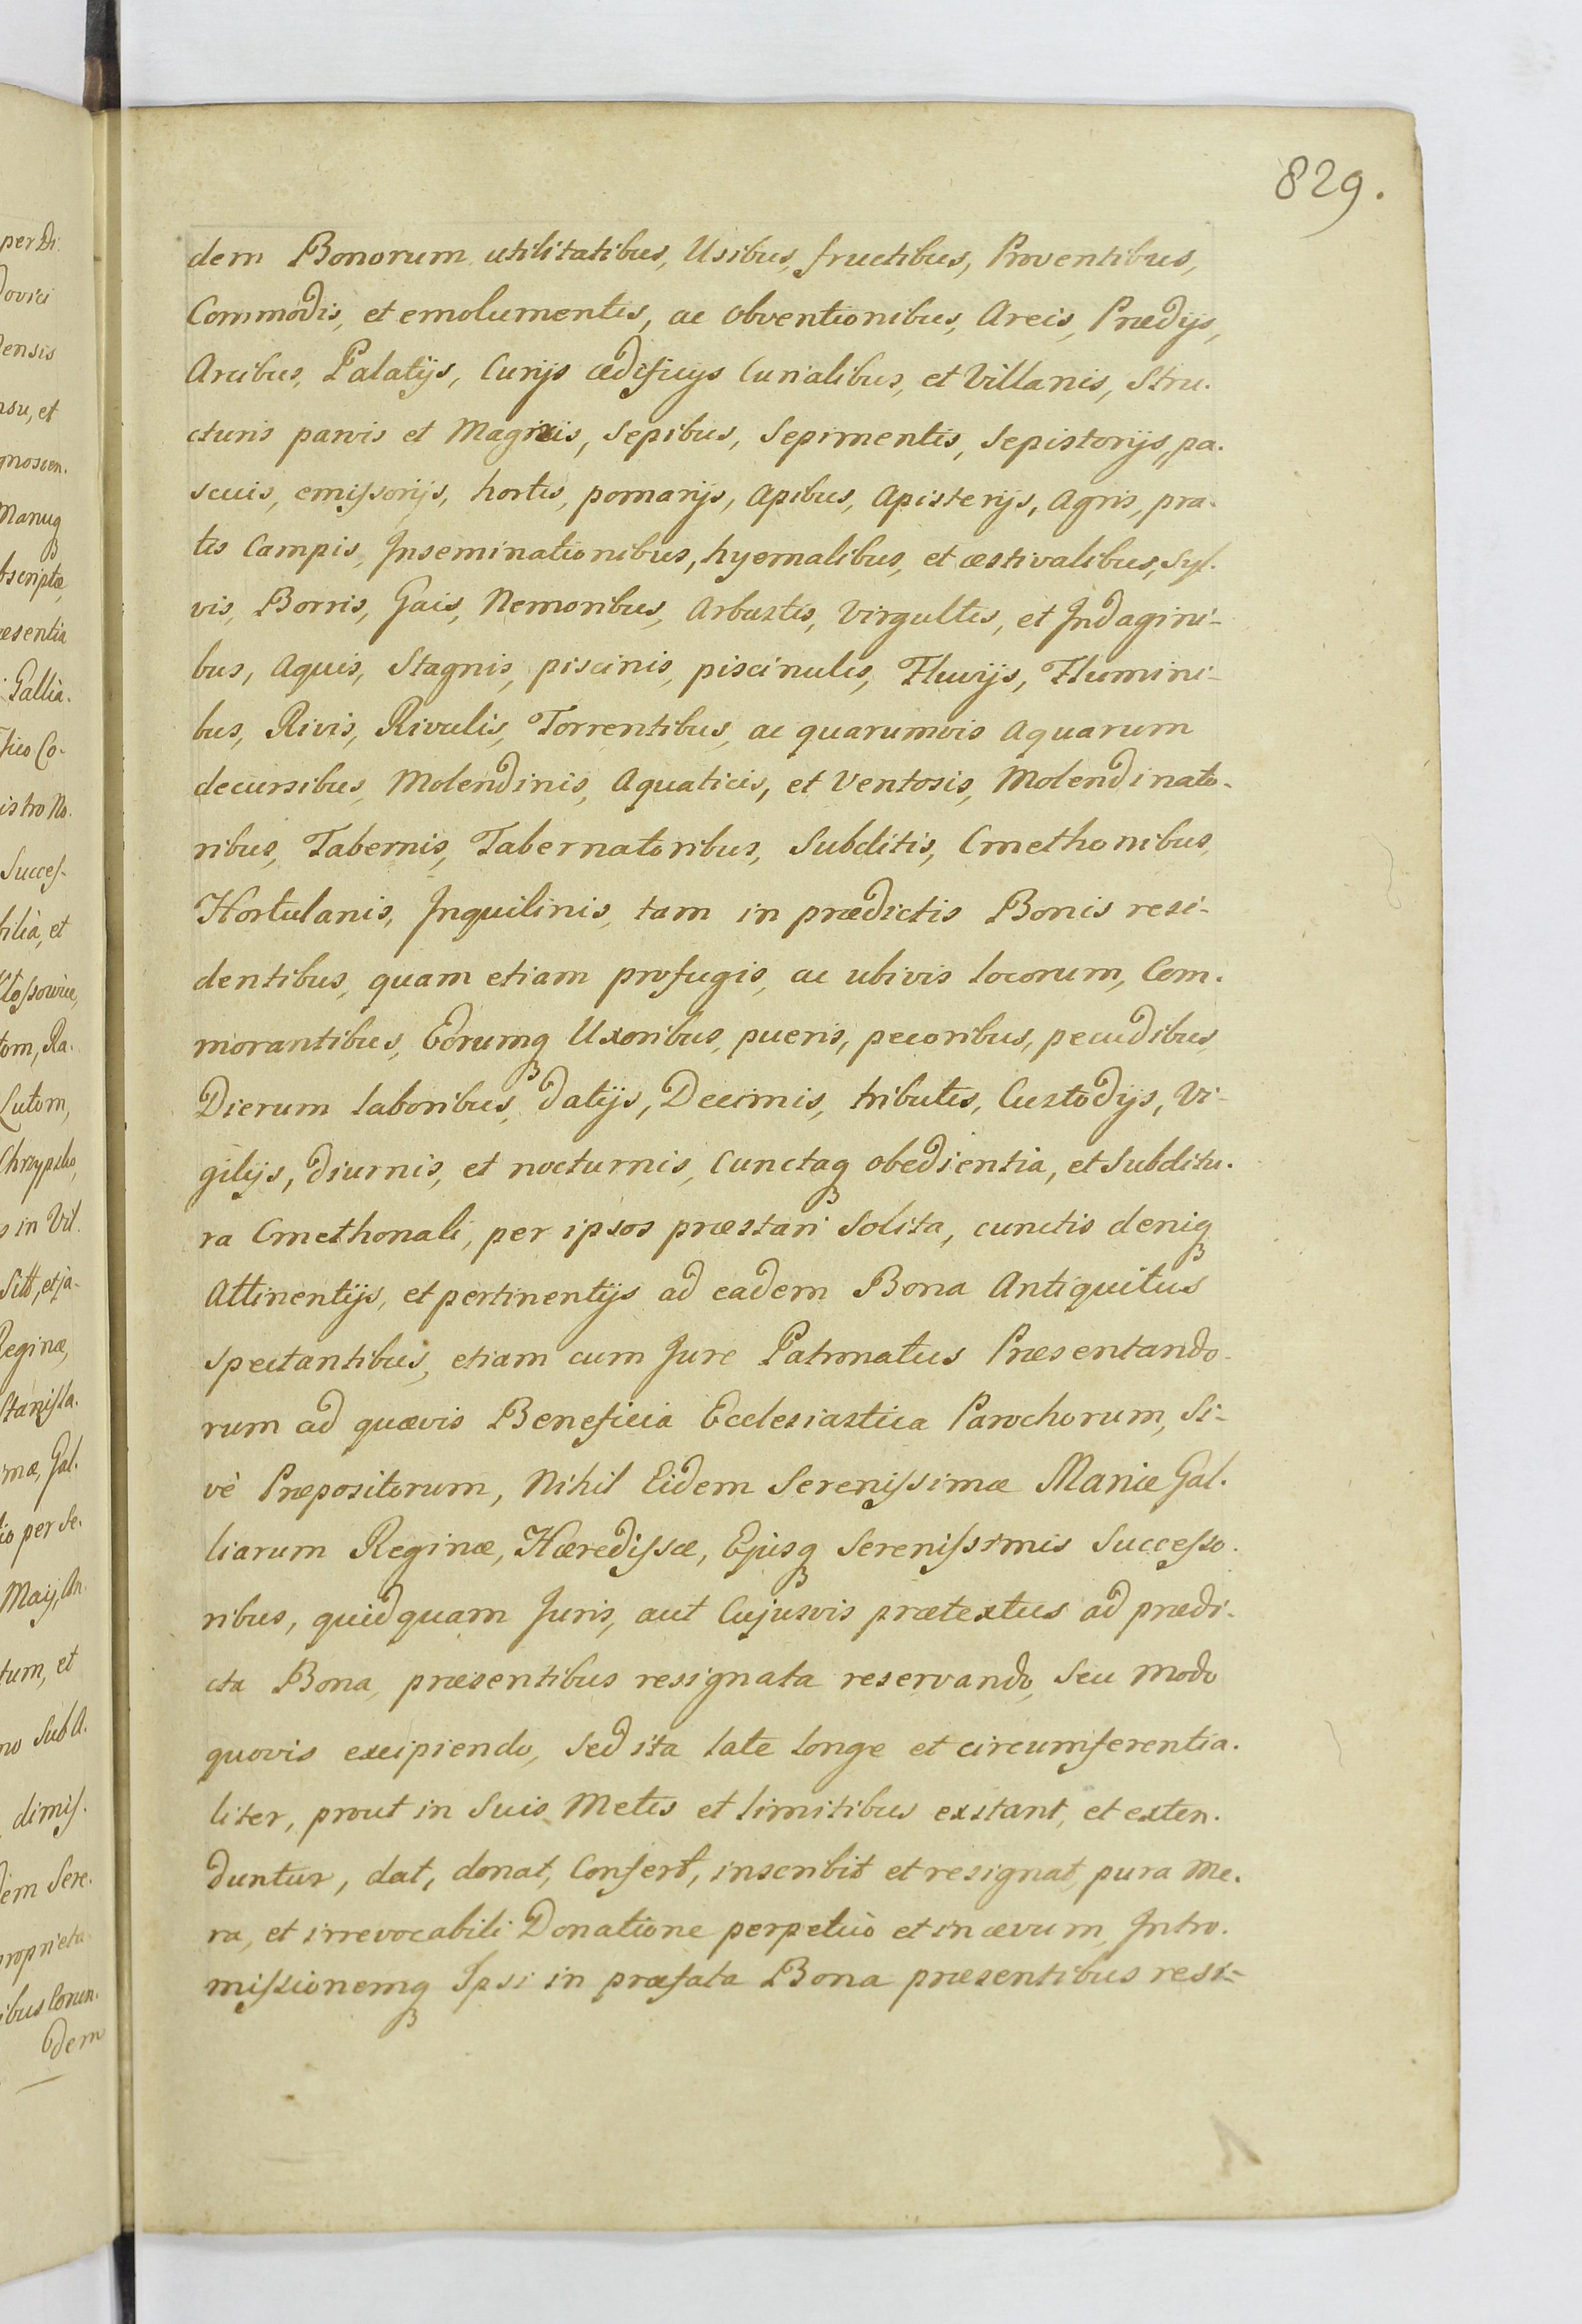 829.
dem Bonorum utilitatibus, Usibus, fructibus, Proventibus,
Commodis, et emolumentis, ac obventionibus, Areis, Prædijs,
Arcibus, Palatijs, Curijs ædificijs Curialibus, et Villanis, Stru-
cturis parvis et Magnis, Sepibus, Sepimentis, Sepistorijs, pa-
scuis, emissorijs, hortis, pomarijs, Apibus, Apisterijs, Agris, pra-
tis Campis, Inseminationibus, hyemalibus, et æstivalibus, Syl-
vis, Borris, Gais, Nemoribus, Arbustis, Virgultis, et Indagini-
bus, Aquis, Stagnis, piscinis, piscinulis, Fluvijs, Flumini-
bus, Rivis, Rivulis, Torrentibus, ac quarumvis Aquarum
decursibus, Molendinis, Aquaticis, et Ventosis, Molendinato-
ribus, Tabernis, Tabernatoribus, Subditis, Cmethonibus,
Hortulanis, Inquilinis, tam in prædictis Bonis resi-
dentibus, quam etiam profugis, ac ubivis locorum, Com-
morantibus, Eorumq Uxoribus, pueris, pecoribus, pecudibus,
Dierum laboribus, datijs, Decimis, tributis, Custodijs, Vi-
gilijs, diurnis, et nocturnis, Cunctaq obedientia, et Subditu-
ra Cmethonali, per ipsos præstari Solita, cunctis deniq
Attinentijs, et pertinentijs ad eadem Bona Antiquitus
Spectantibus, etiam cum Jure Patronatus Præsentando-
rum ad quævis Beneficia Ecclesiastica Parochorum, Si-
vè Præpositorum, Nihil Eidem Serenissimæ Mariæ Gal-
liarum Reginæ, Hæredissæ, Ejusq Serenissimis Successo-
ribus, quidquam Juris, aut Cujusvis prætextus ad prædi-
cta Bona, præsentibus resignata reservando, Seu Modo
quovis excipiendo, Sed ita late longe et circumferentia-
liter, prout in Suis Metis et limitibus exstant, et exten-
duntur, dat, donat, Confert, inscribit et resignat, pura Me-
ra, et irrevocabili Donatione perpetuò et in ævum, Intro-
missionemq Ipsi in præfata Bona præsentibus resi-